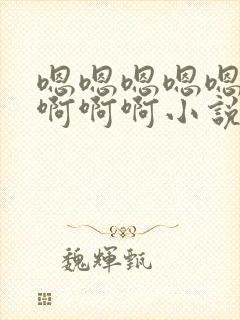 嗯嗯嗯嗯嗯
啊啊啊小说
魏辉甄